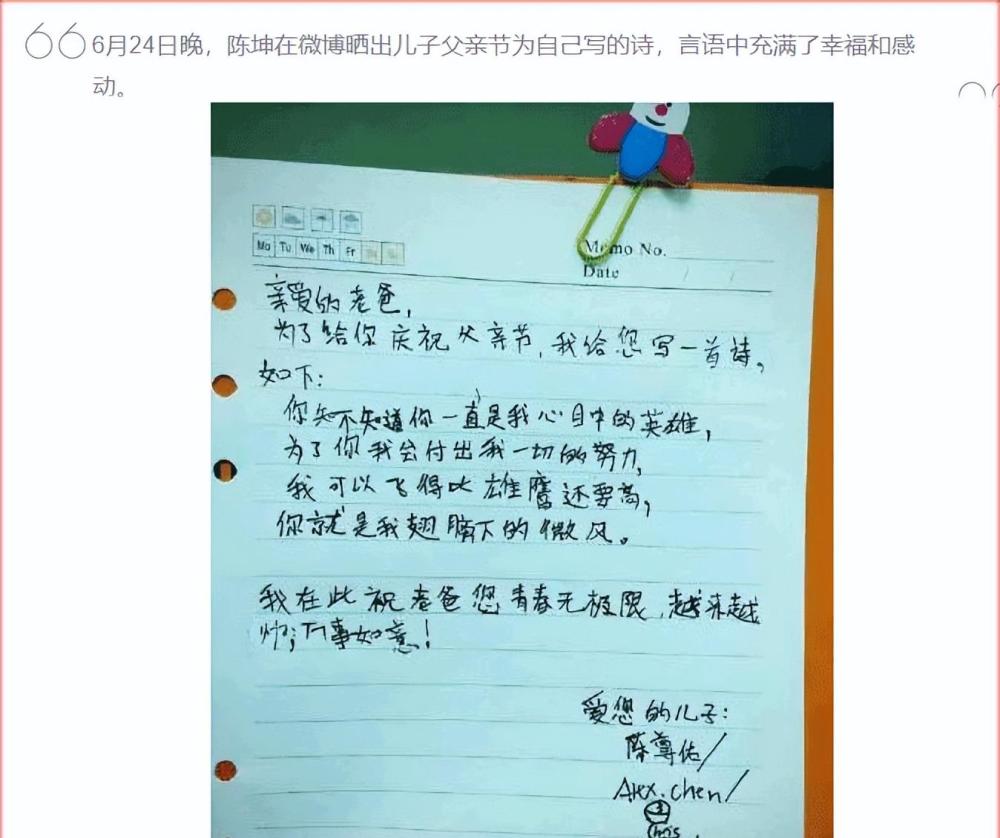 6月24日晚，陈坤在微博晒出儿子父亲节为自己写的诗，言语中充满了幸福和感
动。
Mo Tu We Th Fr
Memo No.
Date / /
亲爱的老爸，
为了给你庆祝父亲节，我给您写一首诗。
如下：
你知不知道你一直是我心目中的英雄，
为了你我会付出我一切的努力，
我可以飞得比雄鹰还要高，
你就是我翅膀下的微风。
我在此祝老爸您青春无极限，越来越
帅；万事如意！
爱您的儿子：
陈尊佑/
Alex.chen/
Chris